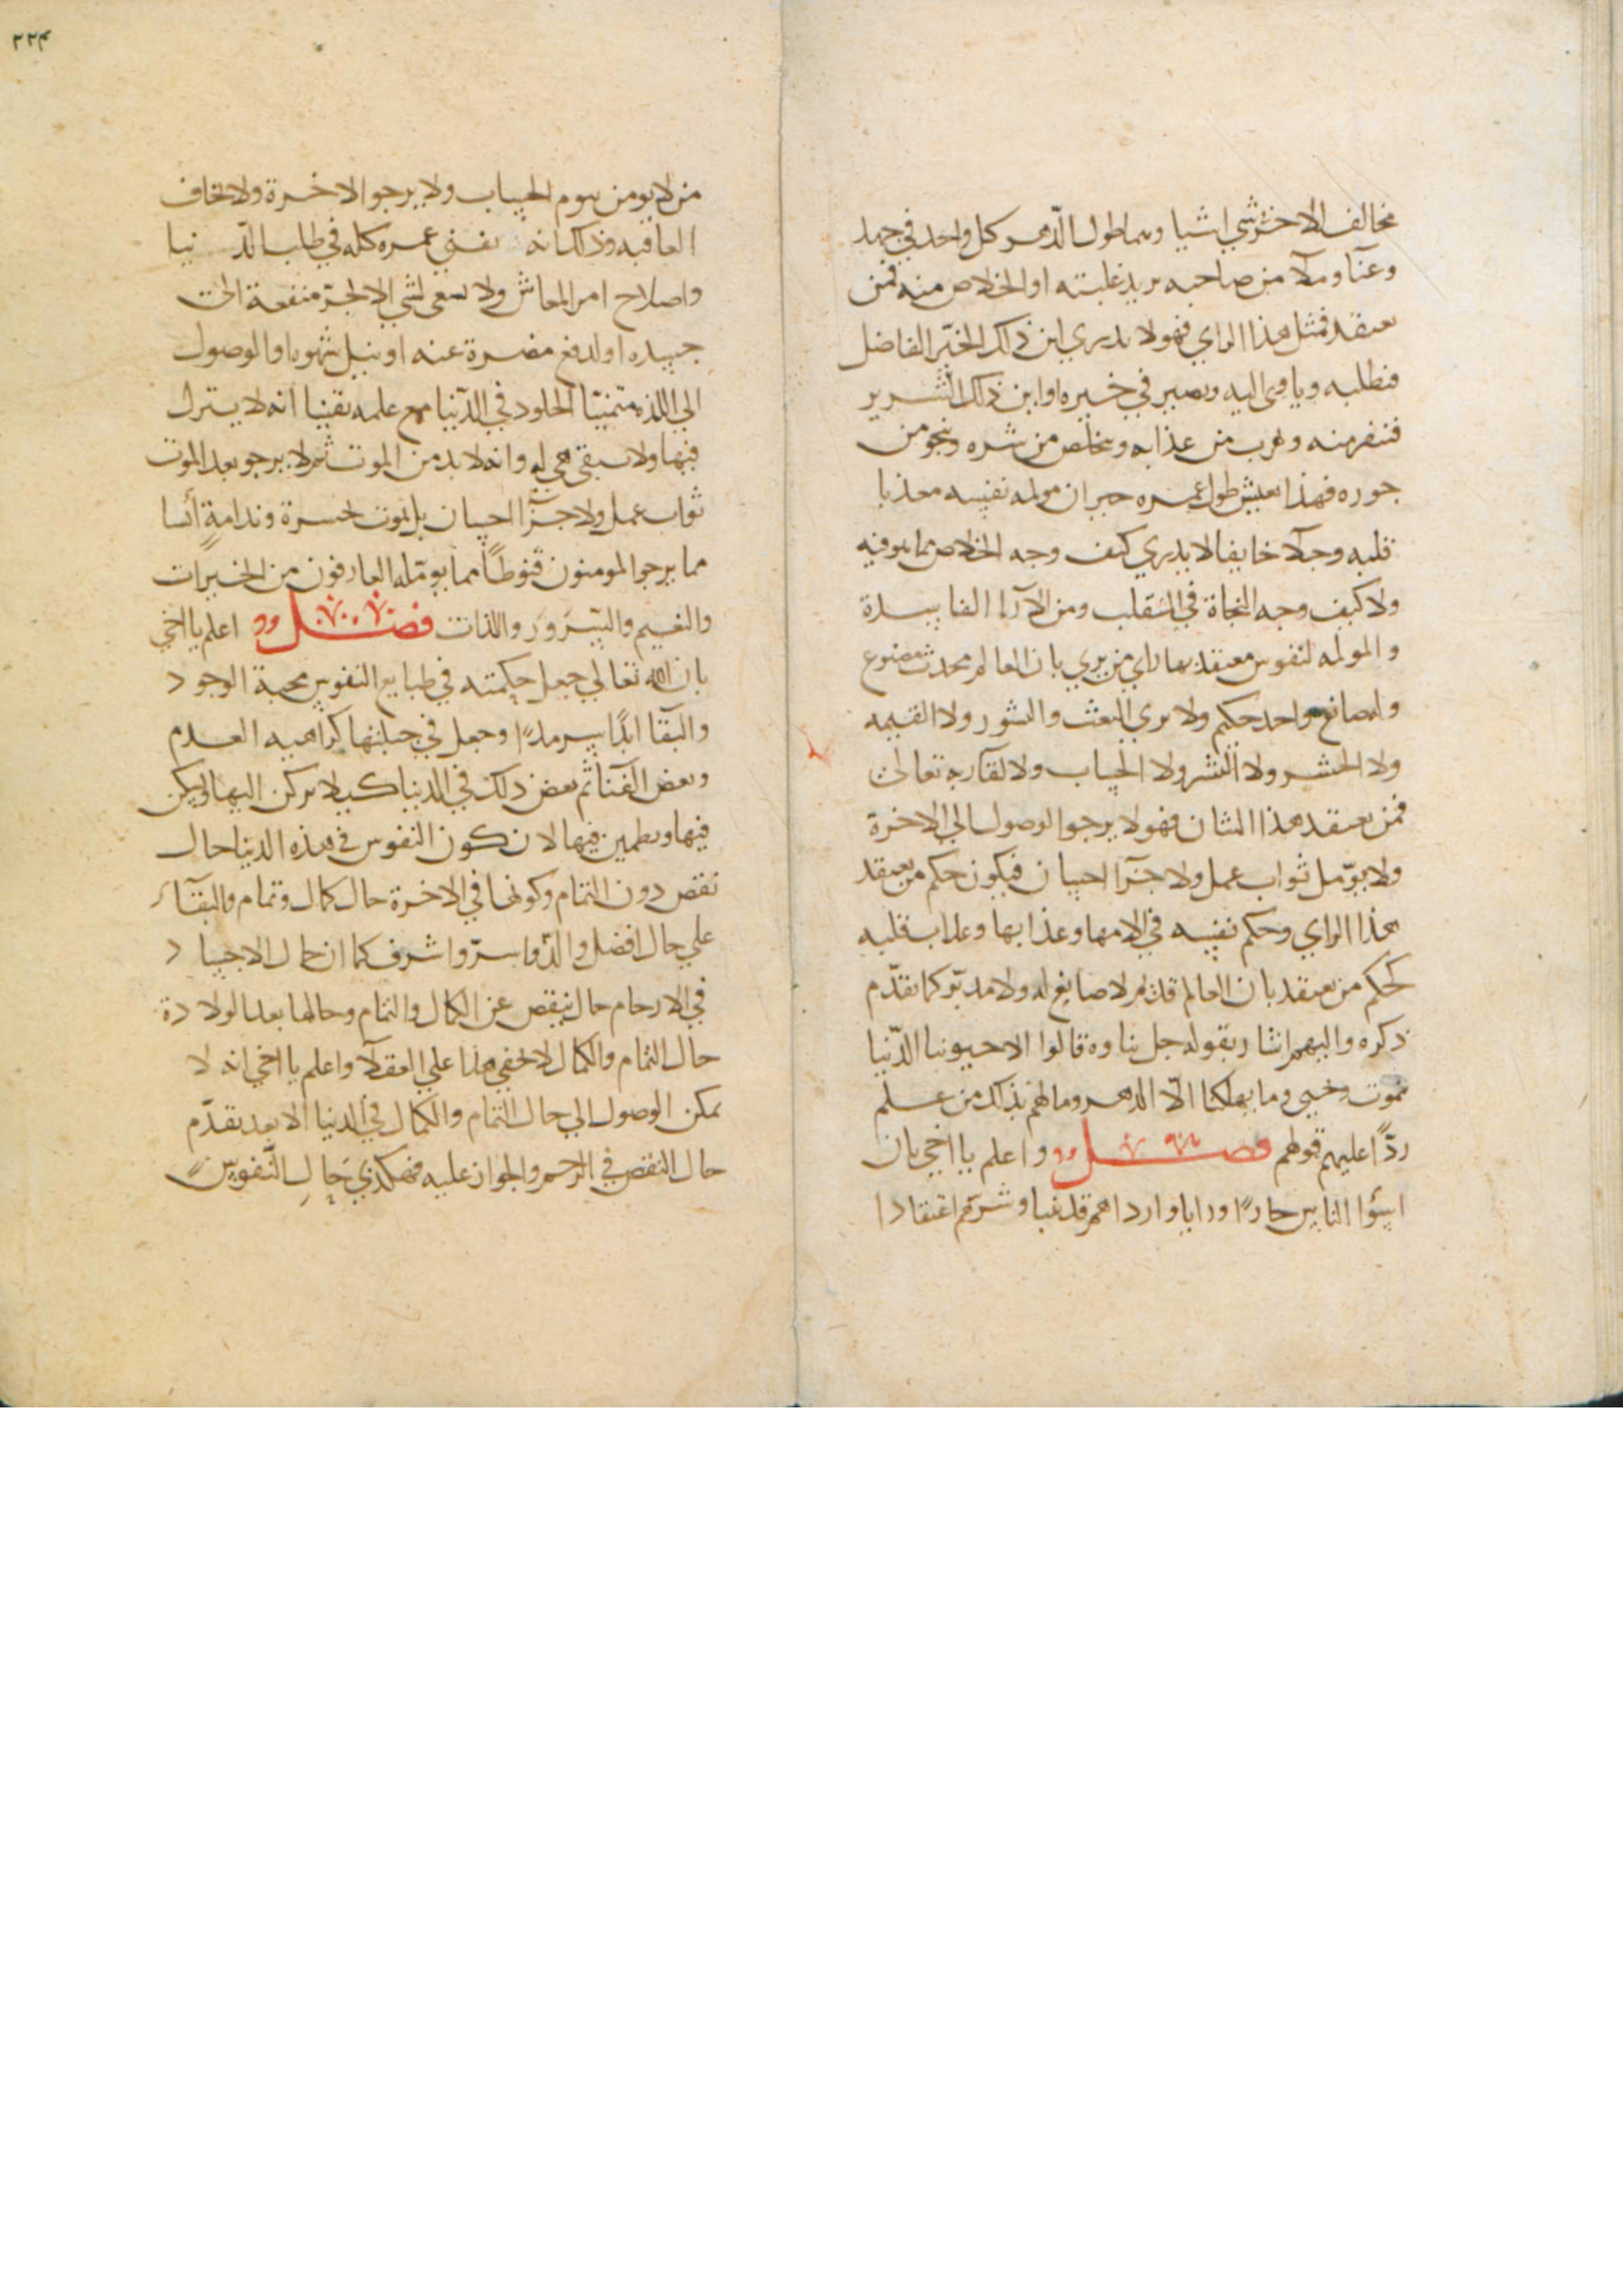 مخالف الاخر شي اشيا وهما طول الدهر كل واحد في جهد
وعنا وبلا من صاحبه يريد غلبته او الخلاص منه فمن
يعتقد فمثل هذا الراي فهو لا يدري اين ذلك الخير الفاضل
فنطلبه وياوى اليه ويصير في خيره او اين ذلك الشرير
فننفر منه ويهرب من عذابه ويتخلص من شره وينجو من
جوره فهذا يعيش طول عمره حيران مولمه نفسه معذبا
قلبه وجلا خايفا لا يدري كيف وجه الخلاص مما هو فيه
ولا كيف وجه النجاة في المنقلب ومن الآرا الفاسدة
والمولمه لنفوس معتقديها راي من يري بان العالم محدث مصنوع
وله صانع واحد حكيم ولا يري البعث والنشور ولا القيمه
ولا الحشر ولا النشر ولا الحساب ولا لقا ربه تعالى
فمن يعتقد هذا الشان فهو لا يرجوا الوصول الي الاخرة
ولا يومّل ثواب عمل ولا جزا احسان فيكون حكم من يعتقد
هذا الراي وحكم نفسه في الامها وعذابها وعذاب قلبه
كحكم من يعتقد بان العالم قديم لا صانع له ولا مدبّر كما تقدّم
ذكره واليهم اشار بقوله جل ثناوه قالوا الا حيوتنا الدّنيا
نموت ونحيى وما يهلكنا الاّ الدهر وما لهم بذلك من علم
ردًّا عليهم قولهم فصل واعلم يا اخي بان
اسؤا الناس حا ورايا وارداهم مذهبا وشرّهم اعتقادا
٢٢٤
من لا يومن بيوم الحساب ولا يرجوا الاخرة ولا يخاف
العاقبه وذلك انه يفني عمره كله في طلب الدّنيا
واصلاح امر المعاش ولا يسعى لشي الا لجرّ منفعة الى
جسده او لدفع مضرة عنه او نيل شهوه او الوصول
الي اللذه متمنيّا الخلود في الدّنيا مع علمه يقينا انه لا يترك
فيها ولا يبقى هي له وانه لا بد من الموت ثم لا يرجو بعد الموت
ثواب عمل ولا جزآ احسان بل يموت بحسرة وندامةٍ أئسا
مما يرجوا المومنون قنوطًا مما يومّله العارفون من الخيرات
والنعيم والسّرور واللذات فصل اعلم يا اخي
بان الله تعالي جعل بحكمته في طبايع النفوس محبة الوجود
والبقا ابدًا سرمدًا وجعل في جبلتها كراهيه العدم
وبغض الفنا ثم بغض ذلك في الدنيا كيلا يركن اليها ويكن
فيها ويطمين فيها لان كون النفوس في هذه الدنيا حال
نقص دون التمام وكونها في الاخرة حال كمال وتمام والبقآء
علي حال افضل والذّ واسرّ واشرف كما ان حال الاجساد
في الارحام حال ينقص عن الكمال والتمام وحالها بعد الولادة
حال التمام والكمال لا يخفي هذا علي العقلا واعلم يا اخي انه لا
يمكن الوصول الي حال التمام والكمال في الدنيا الا بعد تقدّم
حال النقص في الرحم والجواز عليه فهكذي حال النّفوس